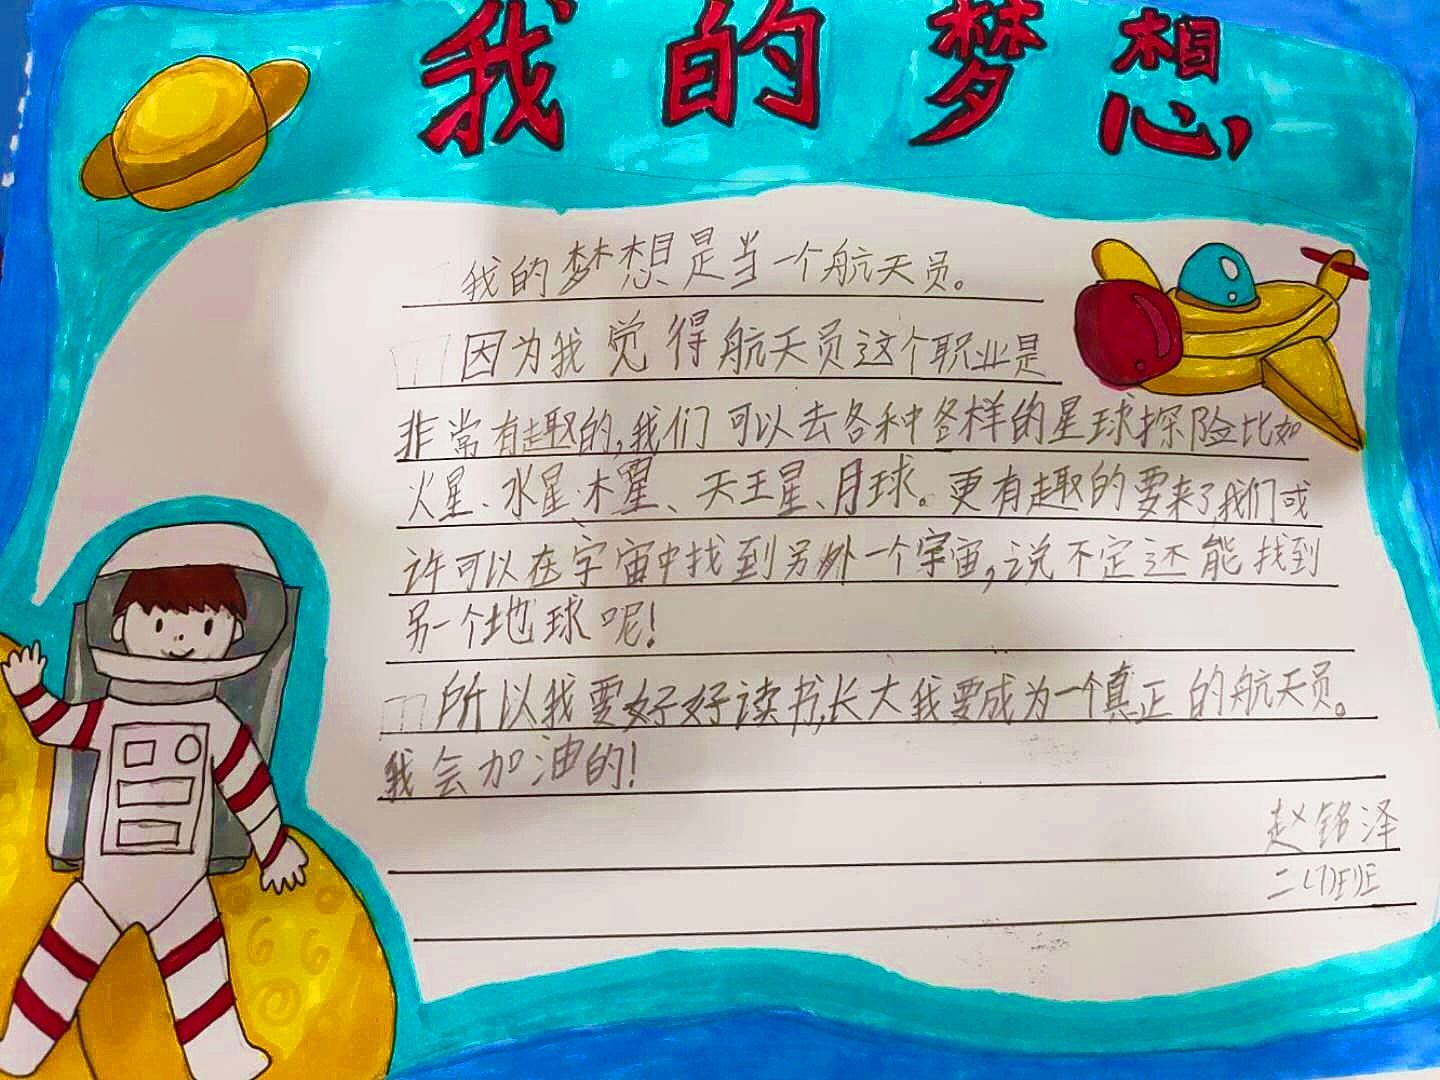 我的梦想
我的梦想是当一个航天员。
因为我觉得航天员这个职业是
非常有趣的,我们可以去各种各样的星球探险比如
火星、水星、木星、天王星、月球。更有趣的要来了我们或
许可以在宇宙中找到另外一个宇宙,说不定还能找到
另一个地球呢!
所以我要好好读书,长大我要成为一个真正的航天员。
我会加油的!
赵铭泽
二(7)班